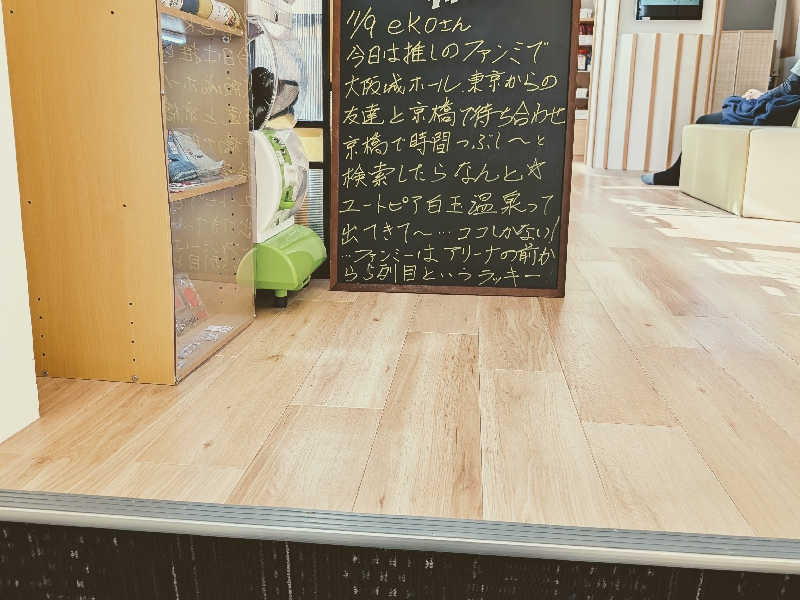 11/9 ekoさん
今日は推しのファンミで
大阪城ホール、東京からの
友達と京橋で待ち合わせ
京橋で時間つぶし〜と
検索したらなんと☆
ユートピア白玉温泉って
出てきて〜…ココしかない!
…ファンミーはアリーナの前か
ら5列目というラッキー